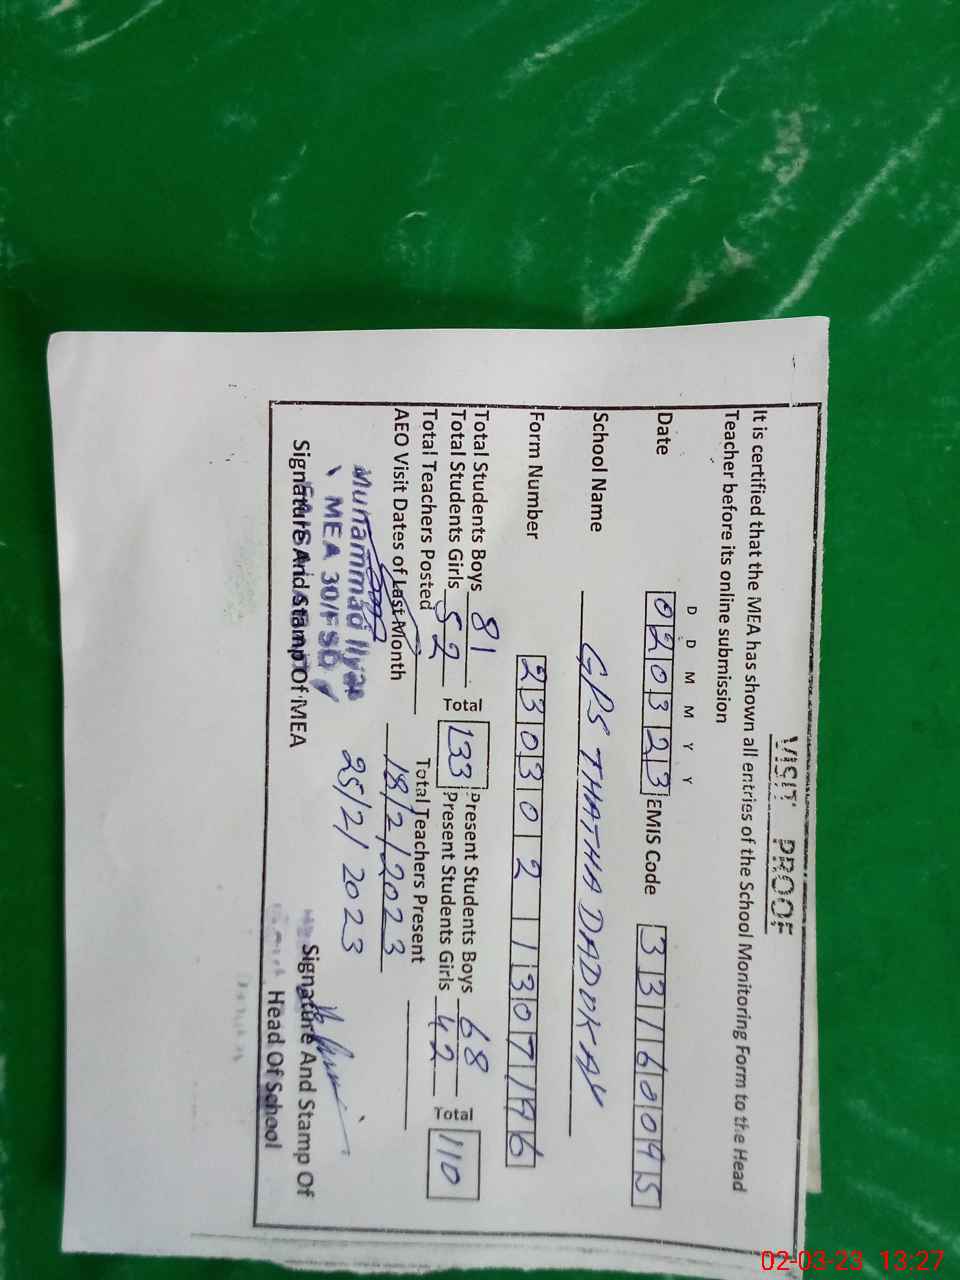 VISIT PROOF
It is certified that the MEA has shown all entries of the School Monitoring Form to the Head
Teacher before its online submission
D D M M Y Y
Date 020323 EMIS Code 33160095
School Name GPS THATHA DADOKAY
Form Number 230302130719 6
Total Students Boys 81 Total 133 Present Students Boys 68 Total 110
Total Students Girls 52 Present Students Girls 42
Total Teachers Posted Total Teachers Present
AEO Visit Dates of Last Month 18/2/2023
25/2/2023
Muhammad Ilyas
MEA 30/FSD
Signature And Stamp Of MEA
Signature And Stamp Of
Head Of School
02-03-23 13:27